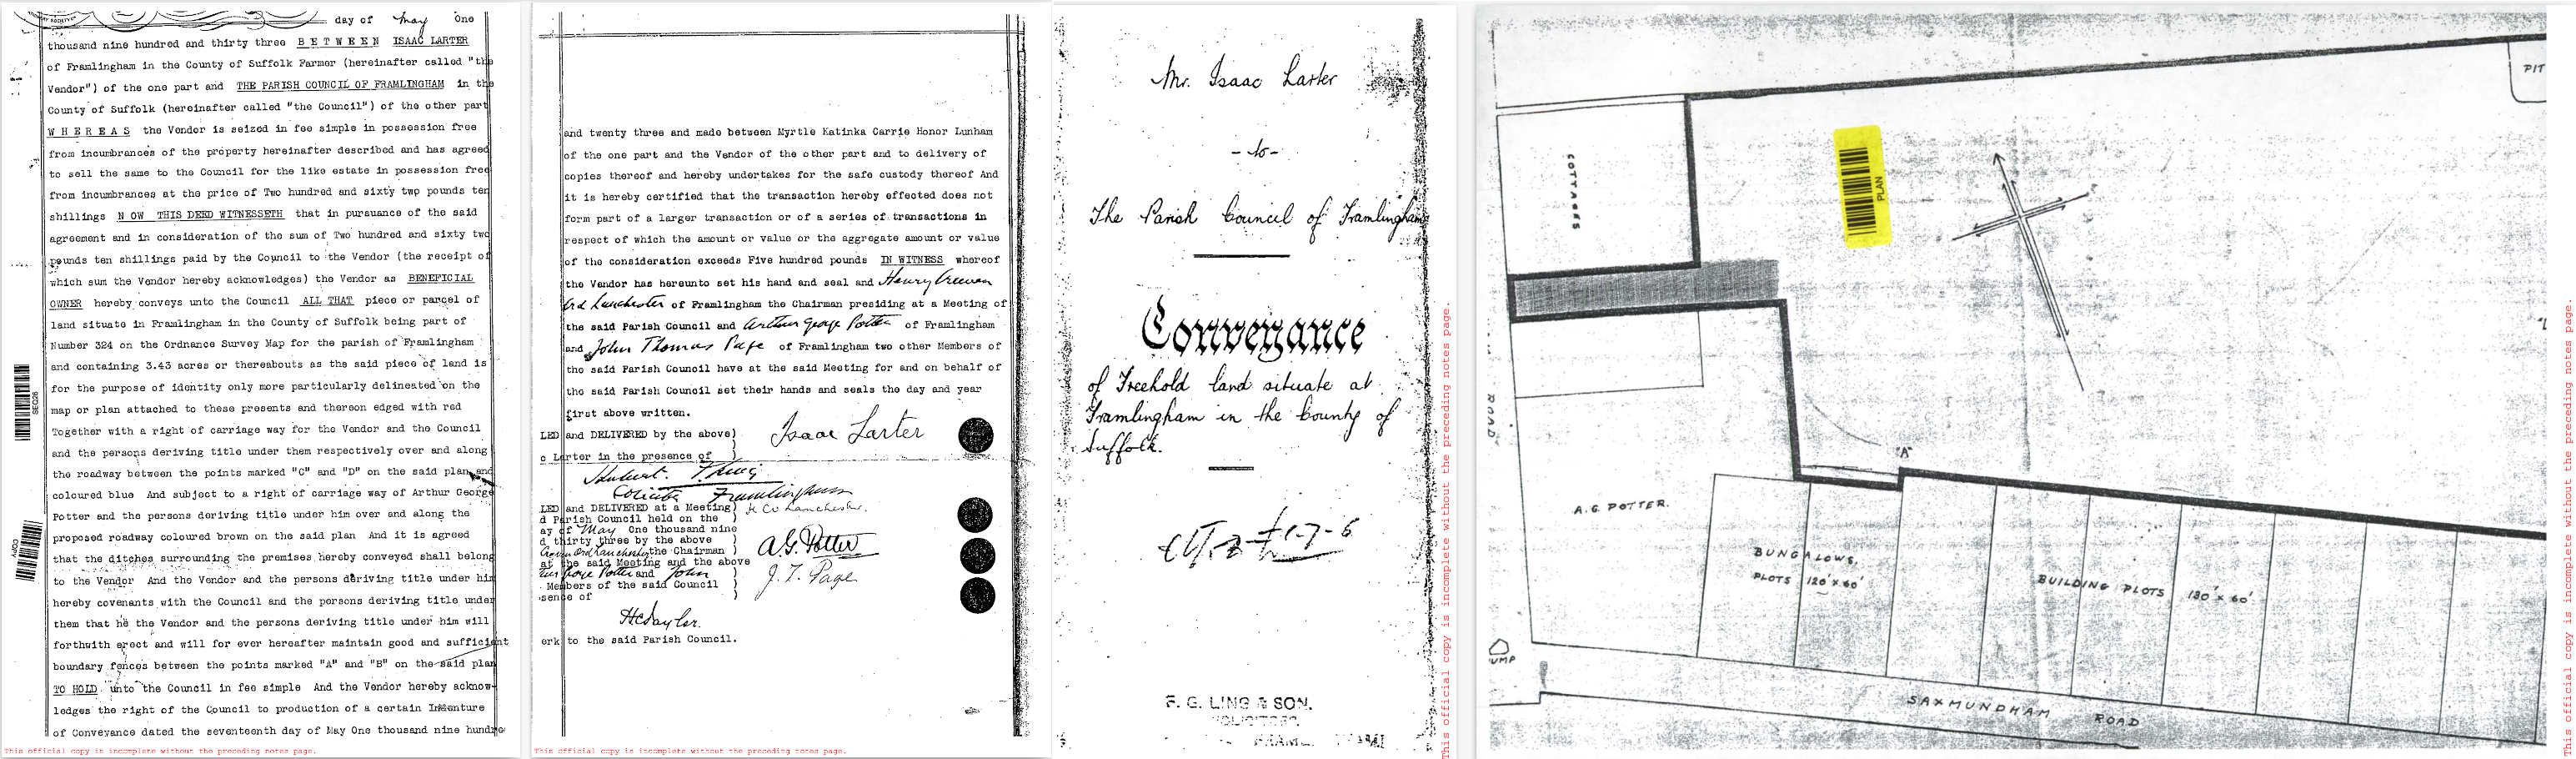 day of May One
thousand nine hundred and thirty three B E T W E E N ISAAC LARTER
of Framlingham in the County of Suffolk Farmer (hereinafter called "the
Vendor") of the one part and THE PARISH COUNCIL OF FRAMLINGHAM in the
County of Suffolk (hereinafter called "the Council") of the other part
W H E R E A S the Vendor is seized in fee simple in possession free
from incumbrances of the property hereinafter described and has agreed
to sell the same to the Council for the like estate in possession free
from incumbrances at the price of Two hundred and sixty two pounds ten
shillings N OW THIS DEED WITNESSETH that in pursuance of the said
agreement and in consideration of the sum of Two hundred and sixty two
pounds ten shillings paid by the Council to the Vendor (the receipt of
which sum the Vendor hereby acknowledges) the Vendor as BENEFICIAL
OWNER hereby conveys unto the Council ALL THAT piece or parcel of
land situate in Framlingham in the County of Suffolk being part of
Number 324 on the Ordnance Survey Map for the parish of Framlingham
and containing 3.43 acres or thereabouts as the said piece of land is
for the purpose of identity only more particularly delineated on the
map or plan attached to these presents and thereon edged with red
Together with a right of carriage way for the Vendor and the Council
and the persons deriving title under them respectively over and along
the roadway between the points marked "C" and "D" on the said plan and
coloured blue And subject to a right of carriage way of Arthur George
Potter and the persons deriving title under him over and along the
proposed roadway coloured brown on the said plan And it is agreed
that the ditches surrounding the premises hereby conveyed shall belong
to the Vendor And the Vendor and the persons deriving title under him
hereby covenants with the Council and the persons deriving title under
them that he the Vendor and the persons deriving title under him will
forthwith erect and will for ever hereafter maintain good and sufficient
boundary fences between the points marked "A" and "B" on the said plan
TO HOLD unto the Council in fee simple And the Vendor hereby acknow-
ledges the right of the Council to production of a certain Indenture
of Conveyance dated the seventeenth day of May One thousand nine hundred
This official copy is incomplete without the preceding notes page.
SEC28
COPY
and twenty three and made between Myrtle Katinka Carrie Honor Lunham
of the one part and the Vendor of the other part and to delivery of
copies thereof and hereby undertakes for the safe custody thereof And
it is hereby certified that the transaction hereby effected does not
form part of a larger transaction or of a series of transactions in
respect of which the amount or value or the aggregate amount or value
of the consideration exceeds Five hundred pounds IN WITNESS whereof
the Vendor has hereunto set his hand and seal and Henry
Lanchester of Framlingham the Chairman presiding at a Meeting of
the said Parish Council and Arthur George Potter of Framlingham
and John Thomas Page of Framlingham two other Members of
the said Parish Council have at the said Meeting for and on behalf of
the said Parish Council set their hands and seals the day and year
first above written.
LED and DELIVERED by the above)
c Larter in the presence of )
Isaac Larter
Framlingham
LED and DELIVERED at a Meeting)
d Parish Council held on the )
ay of May One thousand nine
d thirty three by the above )
the Chairman )
at the said Meeting and the above
George Potter and John )
Members of the said Council )
sence of )
A.G. Potter
J. T. Page
erk to the said Parish Council.
This official copy is incomplete without the preceding notes page.
Mr. Isaac Larter
- to -
The Parish Council of Framlingham
Conveyance
of Freehold land situate at
Framlingham in the County of
Suffolk.
F. G. LING & SON.
SOLICITORS
This official copy is incomplete without the preceding notes page.
PIT
COTTAGES
PLAN
ROAD
"A"
A.G. POTTER.
BUNGALOWS.
PLOTS 120' x 60'
BUILDING PLOTS 180' x 60'
UMP
SAXMUNDHAM ROAD
This official copy is incomplete without the preceding notes page.